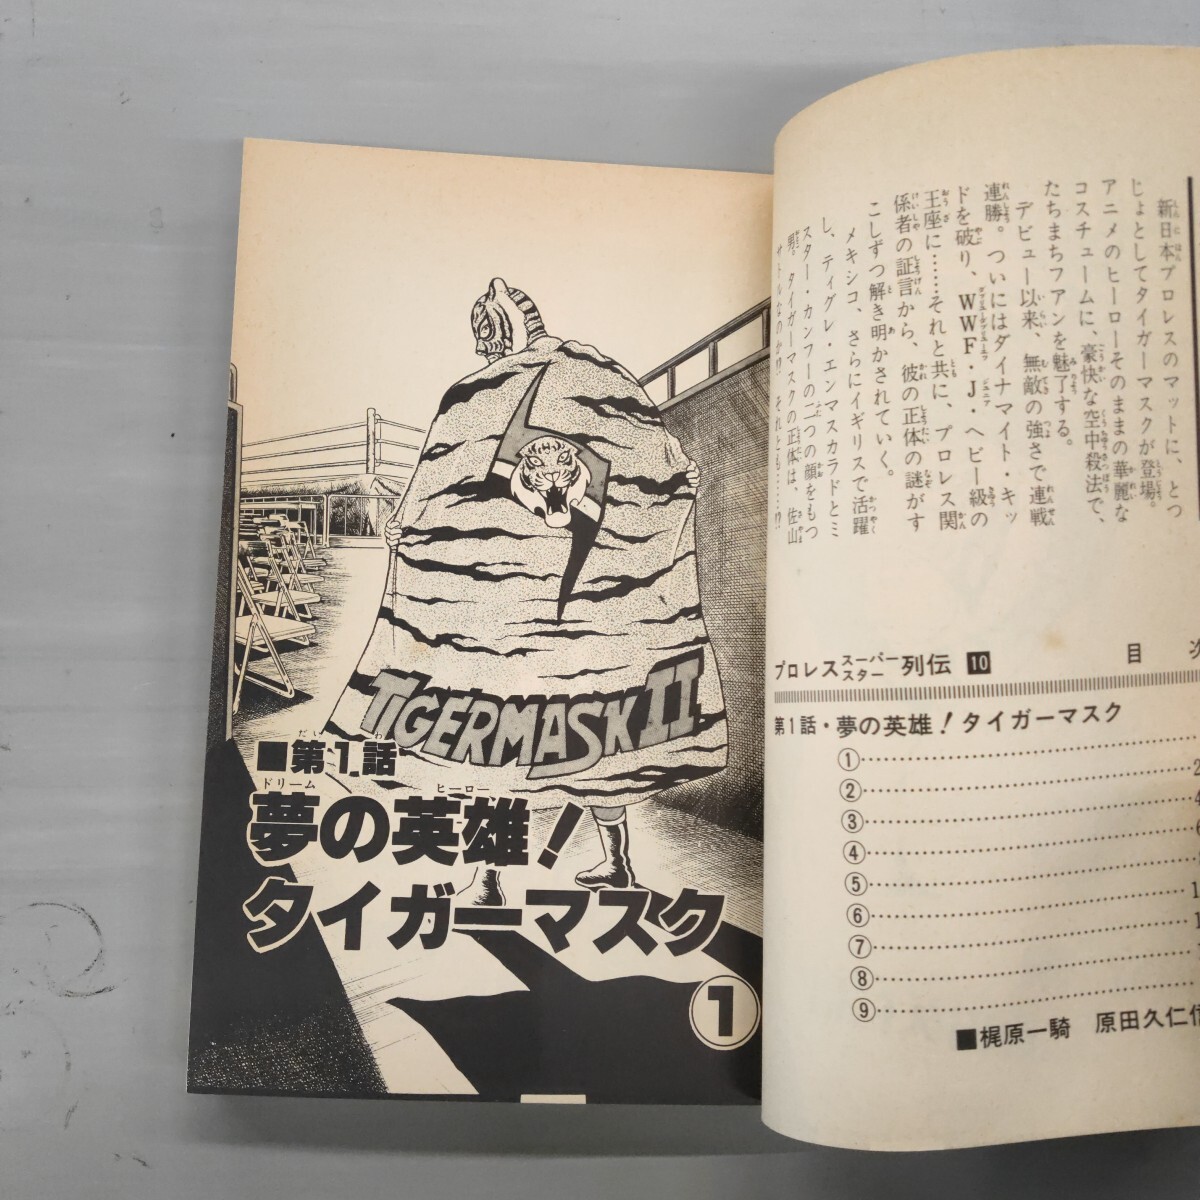 新日本プロレスのマットに、とつ
じょとしてタイガーマスクが登場。
アニメのヒーローそのままの華麗な
コスチュームに、豪快な空中殺法で、
たちまちファンを魅了する。
デビュー以来、無敵の強さで連戦
連勝。ついにはダイナマイト・キッ
ドを破り、WWF・J・ヘビー級の
王座に……それと共に、プロレス関
係者の証言から、彼の正体の謎がす
こしずつ解き明かされていく。
メキシコ、さらにイギリスで活躍
し、ティグレ・エンマスカラドとミ
スター・カンフーの二つの顔をもつ
男。タイガーマスクの正体は、佐山
サトルなのか!? それとも……!?
プロレススーパースター列伝 10
目次
第1話・夢の英雄！タイガーマスク
①
②
③
④
⑤
⑥
⑦
⑧
⑨
■梶原一騎 原田久仁信
TIGERMASK II
■第1話
夢の英雄！
タイガーマスク
①